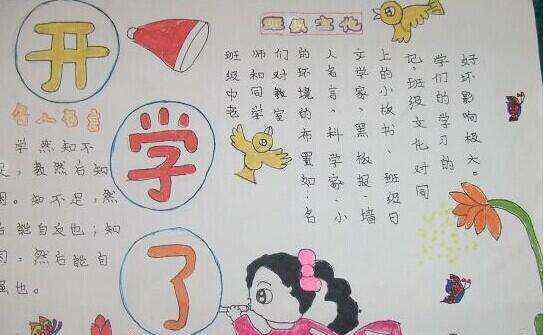 开
学
了
名人名言
学然知不
足，教然后知
困。知不足，然
后能自文也；知
困，然后能自
强也。
班级文化
班级中教
师和同学
们对教室
的环境的布置如：名
人名言、科学家、小
文学家、黑板报、墙
上的小板书、班级日
记、班级文化对同
学们的学习的
好坏影响极大。